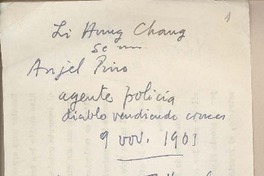 1
Li Hung Chang
se
Anjel Pino
agente policía
diablo vendiendo cruces
9 nov. 1903